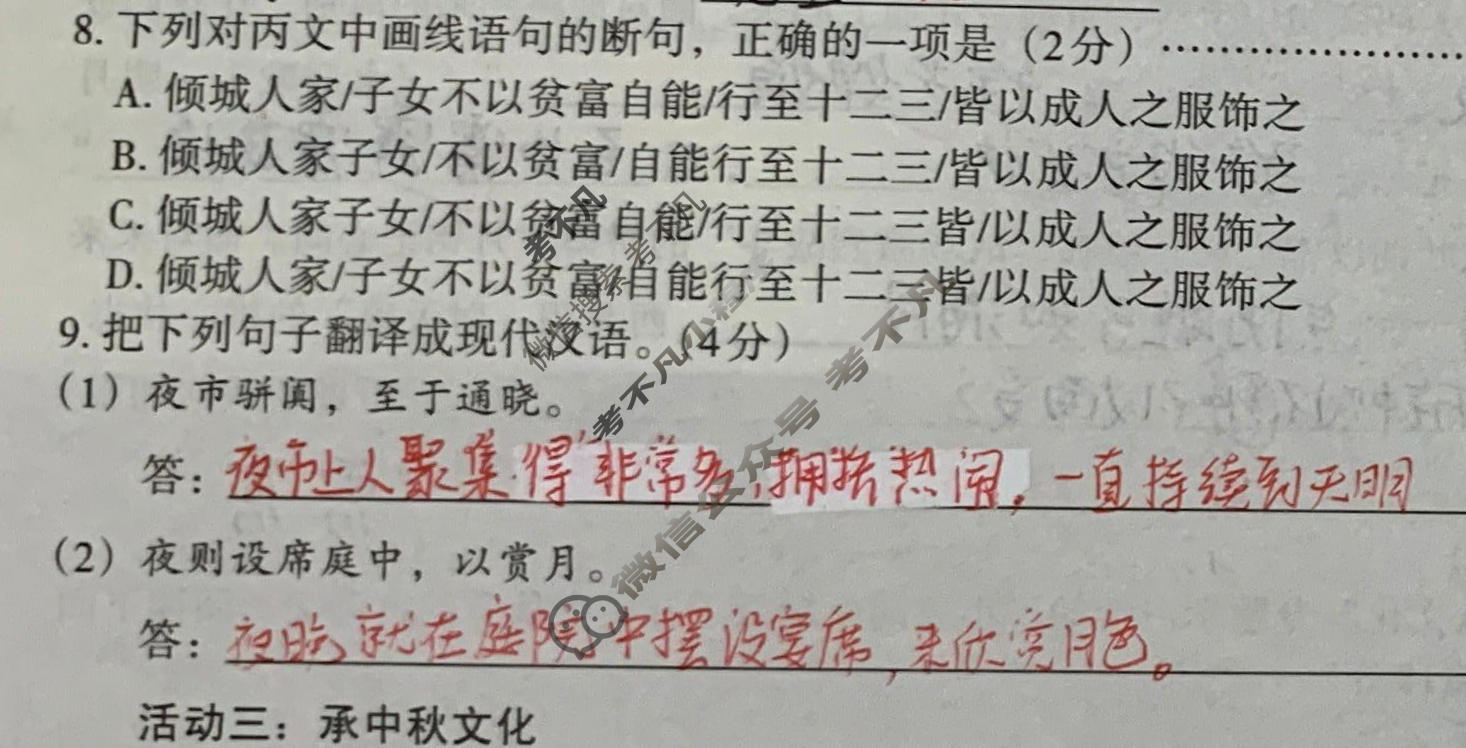 8. 下列对丙文中画线语句的断句，正确的一项是（2分）…………………
A. 倾城人家/子女不以贫富自能/行至十二三/皆以成人之服饰之
B. 倾城人家子女/不以贫富/自能行至十二三/皆以成人之服饰之
C. 倾城人家子女/不以贫富自能/行至十二三皆/以成人之服饰之
D. 倾城人家/子女不以贫富/自能行至十二三皆/以成人之服饰之
9. 把下列句子翻译成现代汉语。（4分）
（1）夜市骈阗，至于通晓。
答：夜市上人聚集得非常多，拥挤热闹，一直持续到天明
（2）夜则设席庭中，以赏月。
答：夜晚就在庭院中摆设宴席，来欣赏月色。
活动三：承中秋文化
考不凡
微信搜索考不凡
考不凡小程序
微信公众号 考不凡